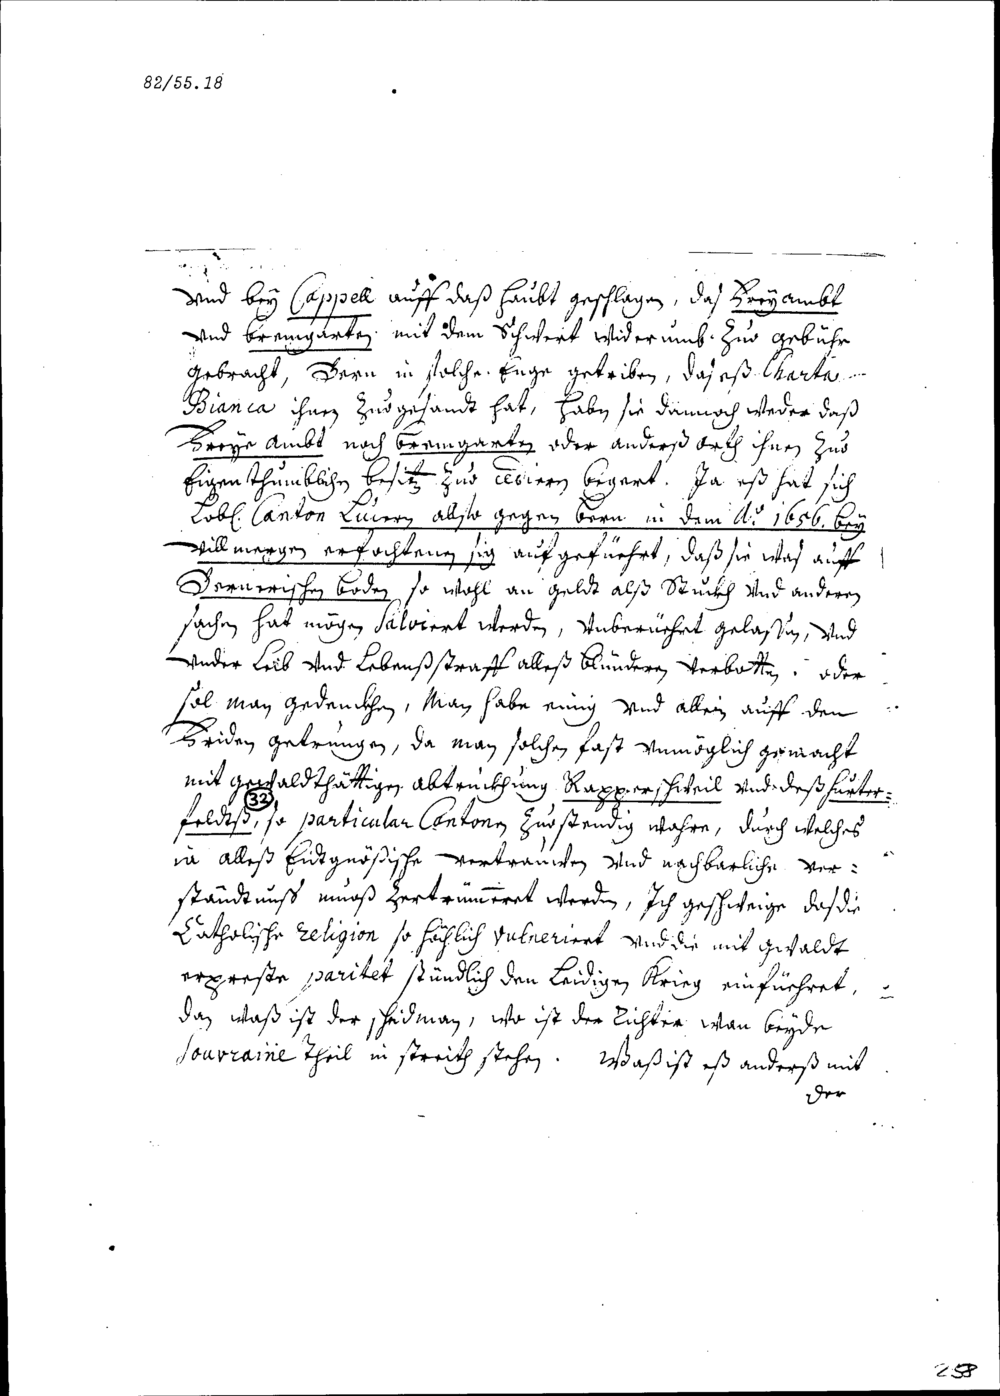 82/55.18
vnd bey Cappell auff daß haubt geschlagen, das Freyambt
vnd bremgarten mit dem Schwert widerumb Zuo gebühr
gebracht, Bern in solche Enge getriben, daß eß Charta
Bianca ihnen Zuogesandt hat, haben sie dannoch weder daß
Freye Ambt noch bremgarten oder anderß orth ihnen Zuo
Eigenthumblichen besitz Zuo cediern begert. Ja eß hat sich
Lobl. Canton Lucern allso gegen bern in dem Ao. 1656. bey
villmergen erfochtenen sig aufgefüehrt, daß sie was auff
Bernerischen boden so wohl an geldt alß Stuckh vnd anderen
sachen hat mögen salviert werden, vnberüehrt gelassen, vnd
vnder Leib vnd Lebenßstraff alleß blündern verbotten. oder
sol man gedenckhen, Man habe einig vnd allein auff den
Friden getrungen, da man solchen fast vnmöglich gemacht
mit gewaldthättigen abtruckhung Rapperschweil vnd deß hurter=
32
feldtß, so particular Cantonen Zuoständig wahre, durch welches
ia alleß Eidtgnößische vertrauwen vnd nachbarliche ver=
ständtnuß muoß Zertrümmeret werden, Ich geschweige das die
Catholische religion so höchlich vulneriert vnd die mit gwaldt
erpreste paritet stündlich den Leidigen Krieg einfüehret,
dan waß ist der schidman, wo ist der Richter wan beyde
souveraine Theil in streith stehen. Waß ist eß anderß mit
der
258